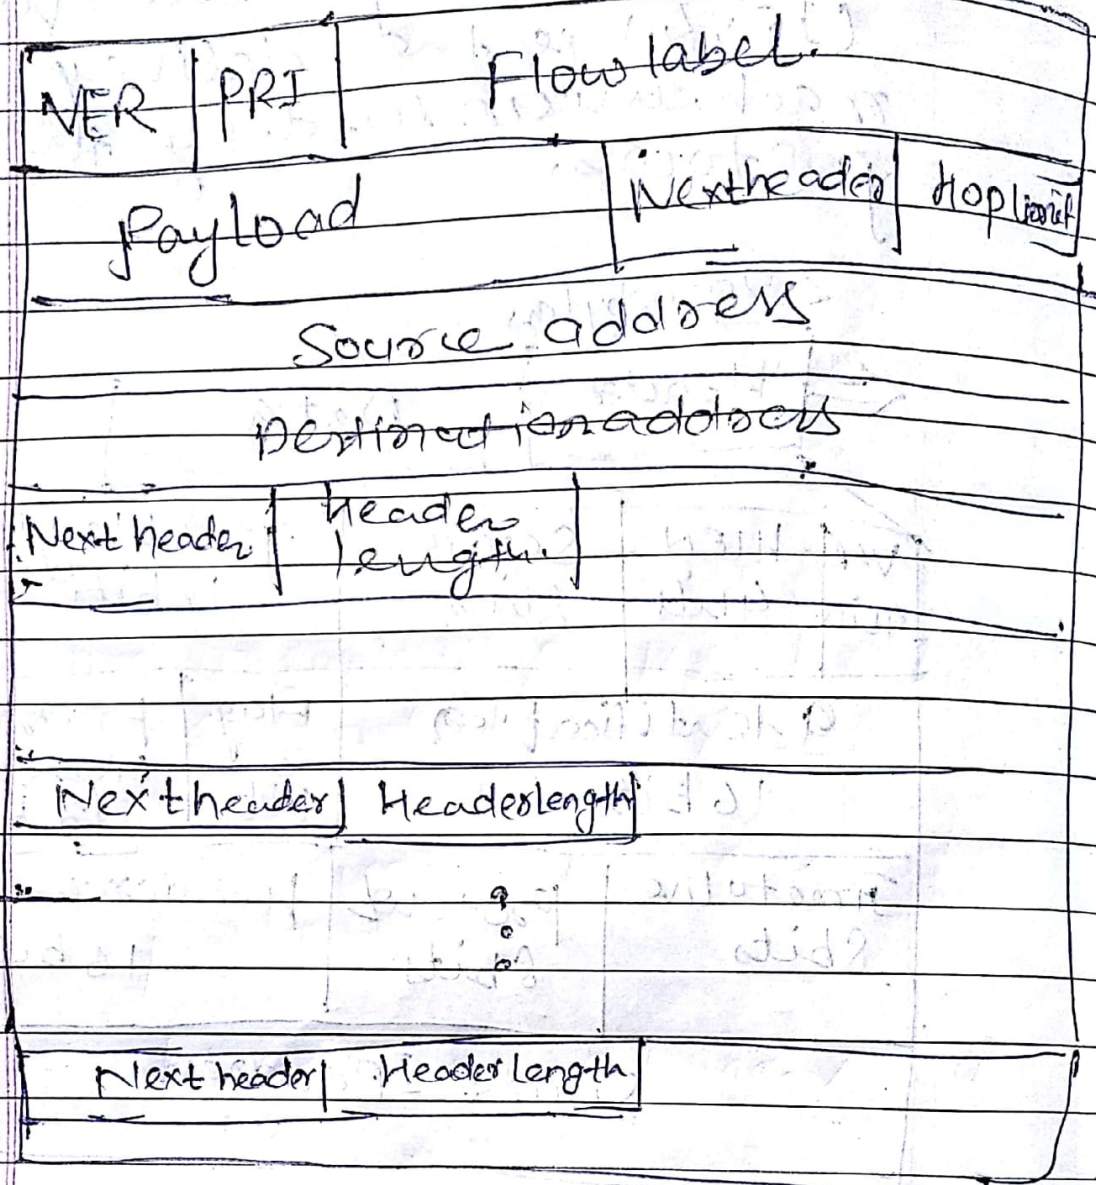 VER PRI Flow label.
Payload Next header Hop limit
Source address
Destination address
Next header Header
length.
Next header Header length
Next header Header length